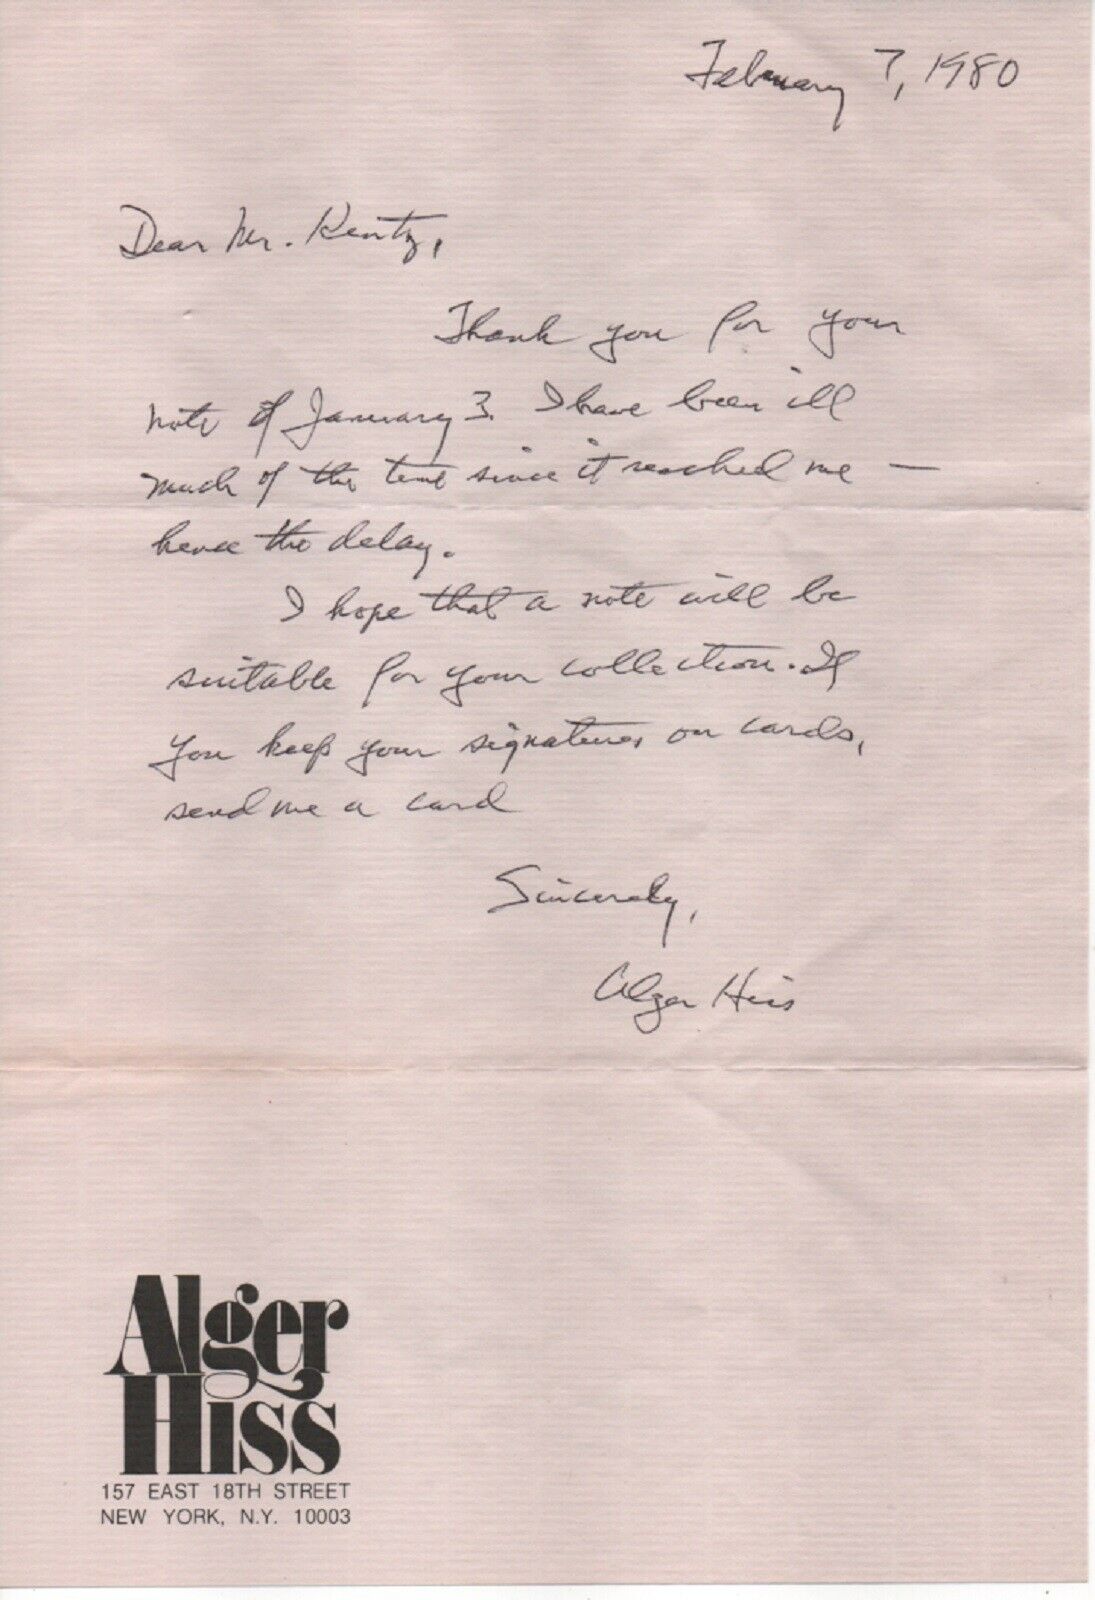 February 7, 1980
Dear Mr. Kentz,
Thank you for your
note of January 3. I have been ill
much of the time since it reached me —
hence the delay.
I hope that a note will be
suitable for your collection. If
you keep your signatures on cards,
send me a card
Sincerely,
Alger Hiss
Alger
Hiss
157 EAST 18TH STREET
NEW YORK, N.Y. 10003